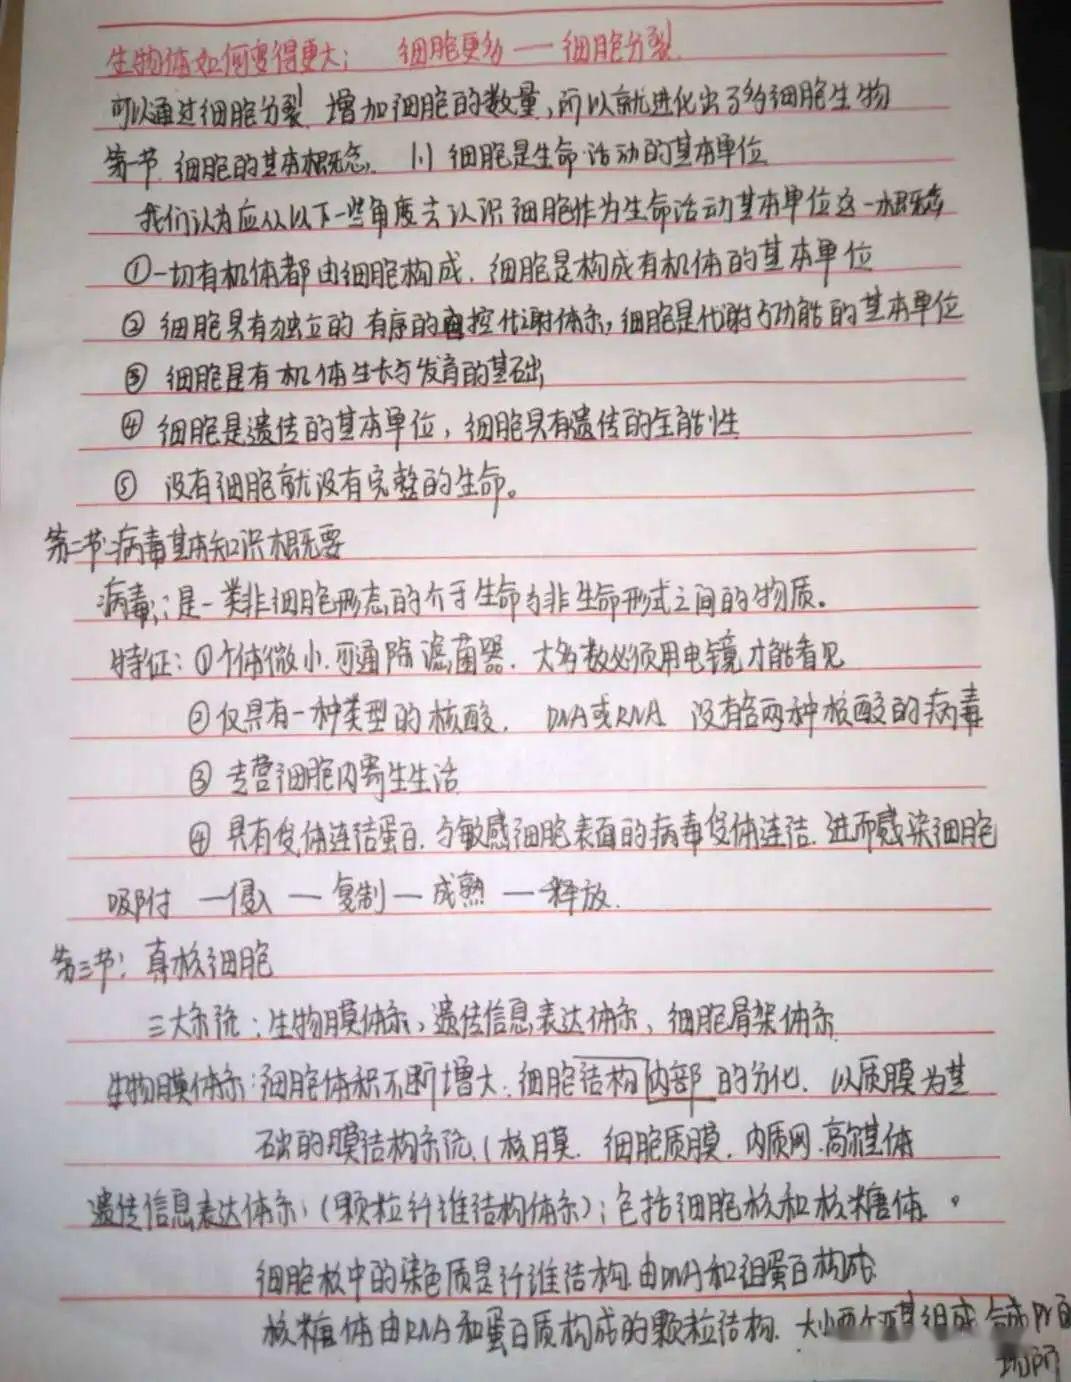 生物体如何变得更大: 细胞更多——细胞分裂.
可以通过细胞分裂 增加细胞的数量,所以就进化出了多细胞生物
第一节 细胞的基本概念. (1) 细胞是生命活动的基本单位
我们认为应从以下一些角度去认识细胞作为生命活动基本单位这一概念
①一切有机体都由细胞构成. 细胞是构成有机体的基本单位
② 细胞具有独立的 有序的自控代谢体系,细胞是代谢与功能的基本单位
③ 细胞是有机体生长与发育的基础
④ 细胞是遗传的基本单位,细胞具有遗传的全能性
⑤ 没有细胞就没有完整的生命。
第二节:病毒基本知识概要
病毒:是一类非细胞形态的介于生命与非生命形式之间的物质。
特征:①个体微小.可通除滤菌器. 大多数必须用电镜才能看见
②仅具有一种类型的核酸. DNA或RNA 没有含两种核酸的病毒
③ 专营细胞内寄生生活
④ 具有受体连结蛋白.与敏感细胞表面的病毒受体连结.进而感染细胞
吸附—侵入—复制—成熟—释放.
第三节: 真核细胞
三大系统:生物膜体系,遗传信息表达体系,细胞骨架体系
生物膜体系:细胞体积不断增大.细胞结构内部的分化. 以质膜为基
础的膜结构系统(核膜. 细胞质膜. 内质网.高尔基体
遗传信息表达体系:(颗粒纤维结构体系):包括细胞核和核糖体.
细胞核中的染色质是纤维结构.由DNA和组蛋白构成
核糖体由RNA和蛋白质构成的颗粒结构. 大小两个亚基组成
场所